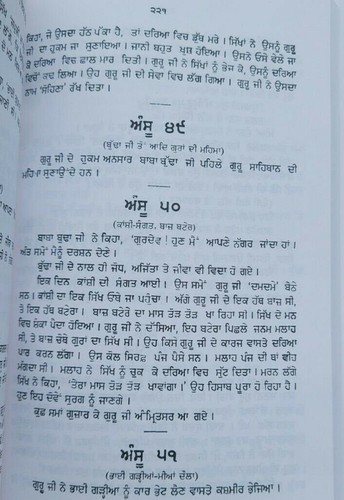 ੨੨੧
ਕਿਹਾ, ਜੇ ਉਸਦਾ ਹੱਠ ਪੱਕਾ ਹੈ, ਤਾਂ ਦਰਿਆ ਵਿਚ ਡੁੱਬ ਮਰੇ। ਸਿੱਖਾਂ ਨੇ ਉਸਨੂੰ ਗੁਰੂ
ਜੀ ਦਾ ਹੁਕਮ ਜਾ ਸੁਣਾਇਆ। ਜਾਨੀ ਬਹੁਤ ਖੁਸ਼ ਹੋਇਆ। ਉਸਨੇ ਓਸੇ ਵੇਲੇ ਜਾ
ਕੇ ਦਰਿਆ ਵਿਚ ਛਾਲ ਮਾਰ ਦਿਤੀ। ਗੁਰੂ ਜੀ ਨੇ ਸਿੱਖਾਂ ਨੂੰ ਭੇਜ ਕੇ, ਉਸਨੂੰ ਦਰਿਆ
ਵਿਚੋਂ ਕਢ ਲਿਆ। ਉਹ ਗੁਰੂ ਜੀ ਦੀ ਸੇਵਾ ਵਿਚ ਲੱਗ ਗਿਆ। ਗੁਰੂ ਜੀ ਨੇ ਉਸਦਾ
ਨਾਮ 'ਸੋਹਿਣਾ' ਰੱਖ ਦਿਤਾ।
ਅੰਸੂ ੪੯
(ਬੁੱਢਾ ਜੀ ਤੋਂ ਆਦਿ ਗੁਰਾਂ ਦੀ ਮਹਿਮਾ)
ਗੁਰੂ ਜੀ ਦੇ ਹੁਕਮ ਅਨਸਾਰ ਬਾਬਾ ਬੁੱਢਾ ਜੀ ਪਹਿਲੇ ਗੁਰੂ ਸਾਹਿਬਾਨ ਦੀ
ਮਹਿਮਾ ਸੁਣਾਉਂਦੇ ਹਨ।
ਅੰਸੂ ੫੦
(ਕਾਂਸ਼ੀ-ਸੰਗਤ, ਬਾਜ਼ ਬਟੇਰ)
ਬਾਬਾ ਬੁਢਾ ਜੀ ਨੇ ਕਿਹਾ, 'ਗੁਰਦੇਵ! ਹੁਣ ਮੈਂ ਆਪਣੇ ਨੱਗਰ ਜਾਂਦਾ ਹਾਂ।
ਅੰਤ ਸਮੇਂ ਮੈਨੂੰ ਦਰਸ਼ਨ ਦੇਣਾ।
ਬੁੱਢਾ ਜੀ ਦੇ ਨਾਲ ਹੀ ਜੋਧ, ਅਜਿੱਤਾ ਤੇ ਜੀਵਾ ਵੀ ਵਿਦਾ ਹੋ ਗਏ।
ਇਕ ਦਿਨ ਕਾਂਸ਼ੀ ਦੀ ਸੰਗਤ ਆਈ। ਉਸ ਸਮੇਂ ਗੁਰੂ ਜੀ 'ਦਮਦਮੇ' ਬੈਠੇ
ਸਨ। ਕਾਂਸ਼ੀ ਦਾ ਇਕ ਸਿੱਖ ਓਥੇ ਜਾ ਪਹੁੰਚਾ। ਅੱਗੇ ਗੁਰੂ ਜੀ ਦੇ ਇਕ ਹੱਥ ਬਾਜ਼ ਸੀ,
ਤੇ ਇਕ ਹੱਥ ਬਟੇਰਾ। ਬਾਜ਼ ਬਟੇਰੇ ਦਾ ਮਾਸ ਤੋੜ ਤੋੜ ਖਾ ਰਿਹਾ ਸੀ। ਸਿੱਖ ਦੇ ਮਨ
ਵਿਚ ਸ਼ੰਕਾ ਪੈਦਾ ਹੋਇਆ। ਗੁਰੂ ਜੀ ਨੇ ਦੱਸਿਆ, ਇਹ ਬਟੇਰਾ ਪਿਛਲੇ ਜਨਮ ਮਲਾਹ
ਸੀ, ਤੇ ਬਾਜ਼ ਚੌਥੇ ਗੁਰਾਂ ਦਾ ਸਿੱਖ ਸੀ। ਉਹ ਕਿਸੇ ਗੁਰੂ ਜੀ ਦੇ ਕਾਰਜ ਵਾਸਤੇ ਦਰਿਆ
ਪਾਰ ਕਰਨ ਲੱਗਾ। ਉਸ ਕੋਲ ਸਿਰਫ਼ ਪੰਜ ਪੈਸੇ ਸਨ। ਮਲਾਹ ਪੰਜ ਦੀ ਥਾਂ ਵੀਹ
ਮੰਗਦਾ ਸੀ। ਮਲਾਹ ਨੇ ਸਿੱਖ ਨੂੰ ਚੁਕ ਕੇ ਦਰਿਆ ਵਿਚ ਸੁੱਟ ਦਿਤਾ। ਮਰਨ ਲੱਗੇ
ਸਿੱਖ ਨੇ ਕਿਹਾ, 'ਤੇਰਾ ਮਾਸ ਤੋੜ ਤੋੜ ਖਾਵਾਂਗਾ।' ਉਹ ਹਿਸਾਬ ਪੂਰਾ ਹੋ ਰਿਹਾ ਹੈ।
ਹੁਣ ਇਹ ਦੋਵੇਂ ਸੁਰਗ ਨੂੰ ਜਾਣਗੇ।
ਕੁਛ ਸਮਾਂ ਗੁਜ਼ਾਰ ਕੇ ਗੁਰੂ ਜੀ ਅੰਮ੍ਰਿਤਸਰ ਆ ਗਏ।
ਅੰਸੂ ੫੧
(ਭਾਈ ਗੜ੍ਹੀਆ-ਮੀਆਂ ਦੌਲਾ)
ਗੁਰੂ ਜੀ ਨੇ ਭਾਈ ਗੜ੍ਹੀਆ ਨੂੰ ਕਾਰ ਭੇਟ ਲੈਣ ਵਾਸਤੇ ਕਸ਼ਮੀਰ ਭੇਜਿਆ।